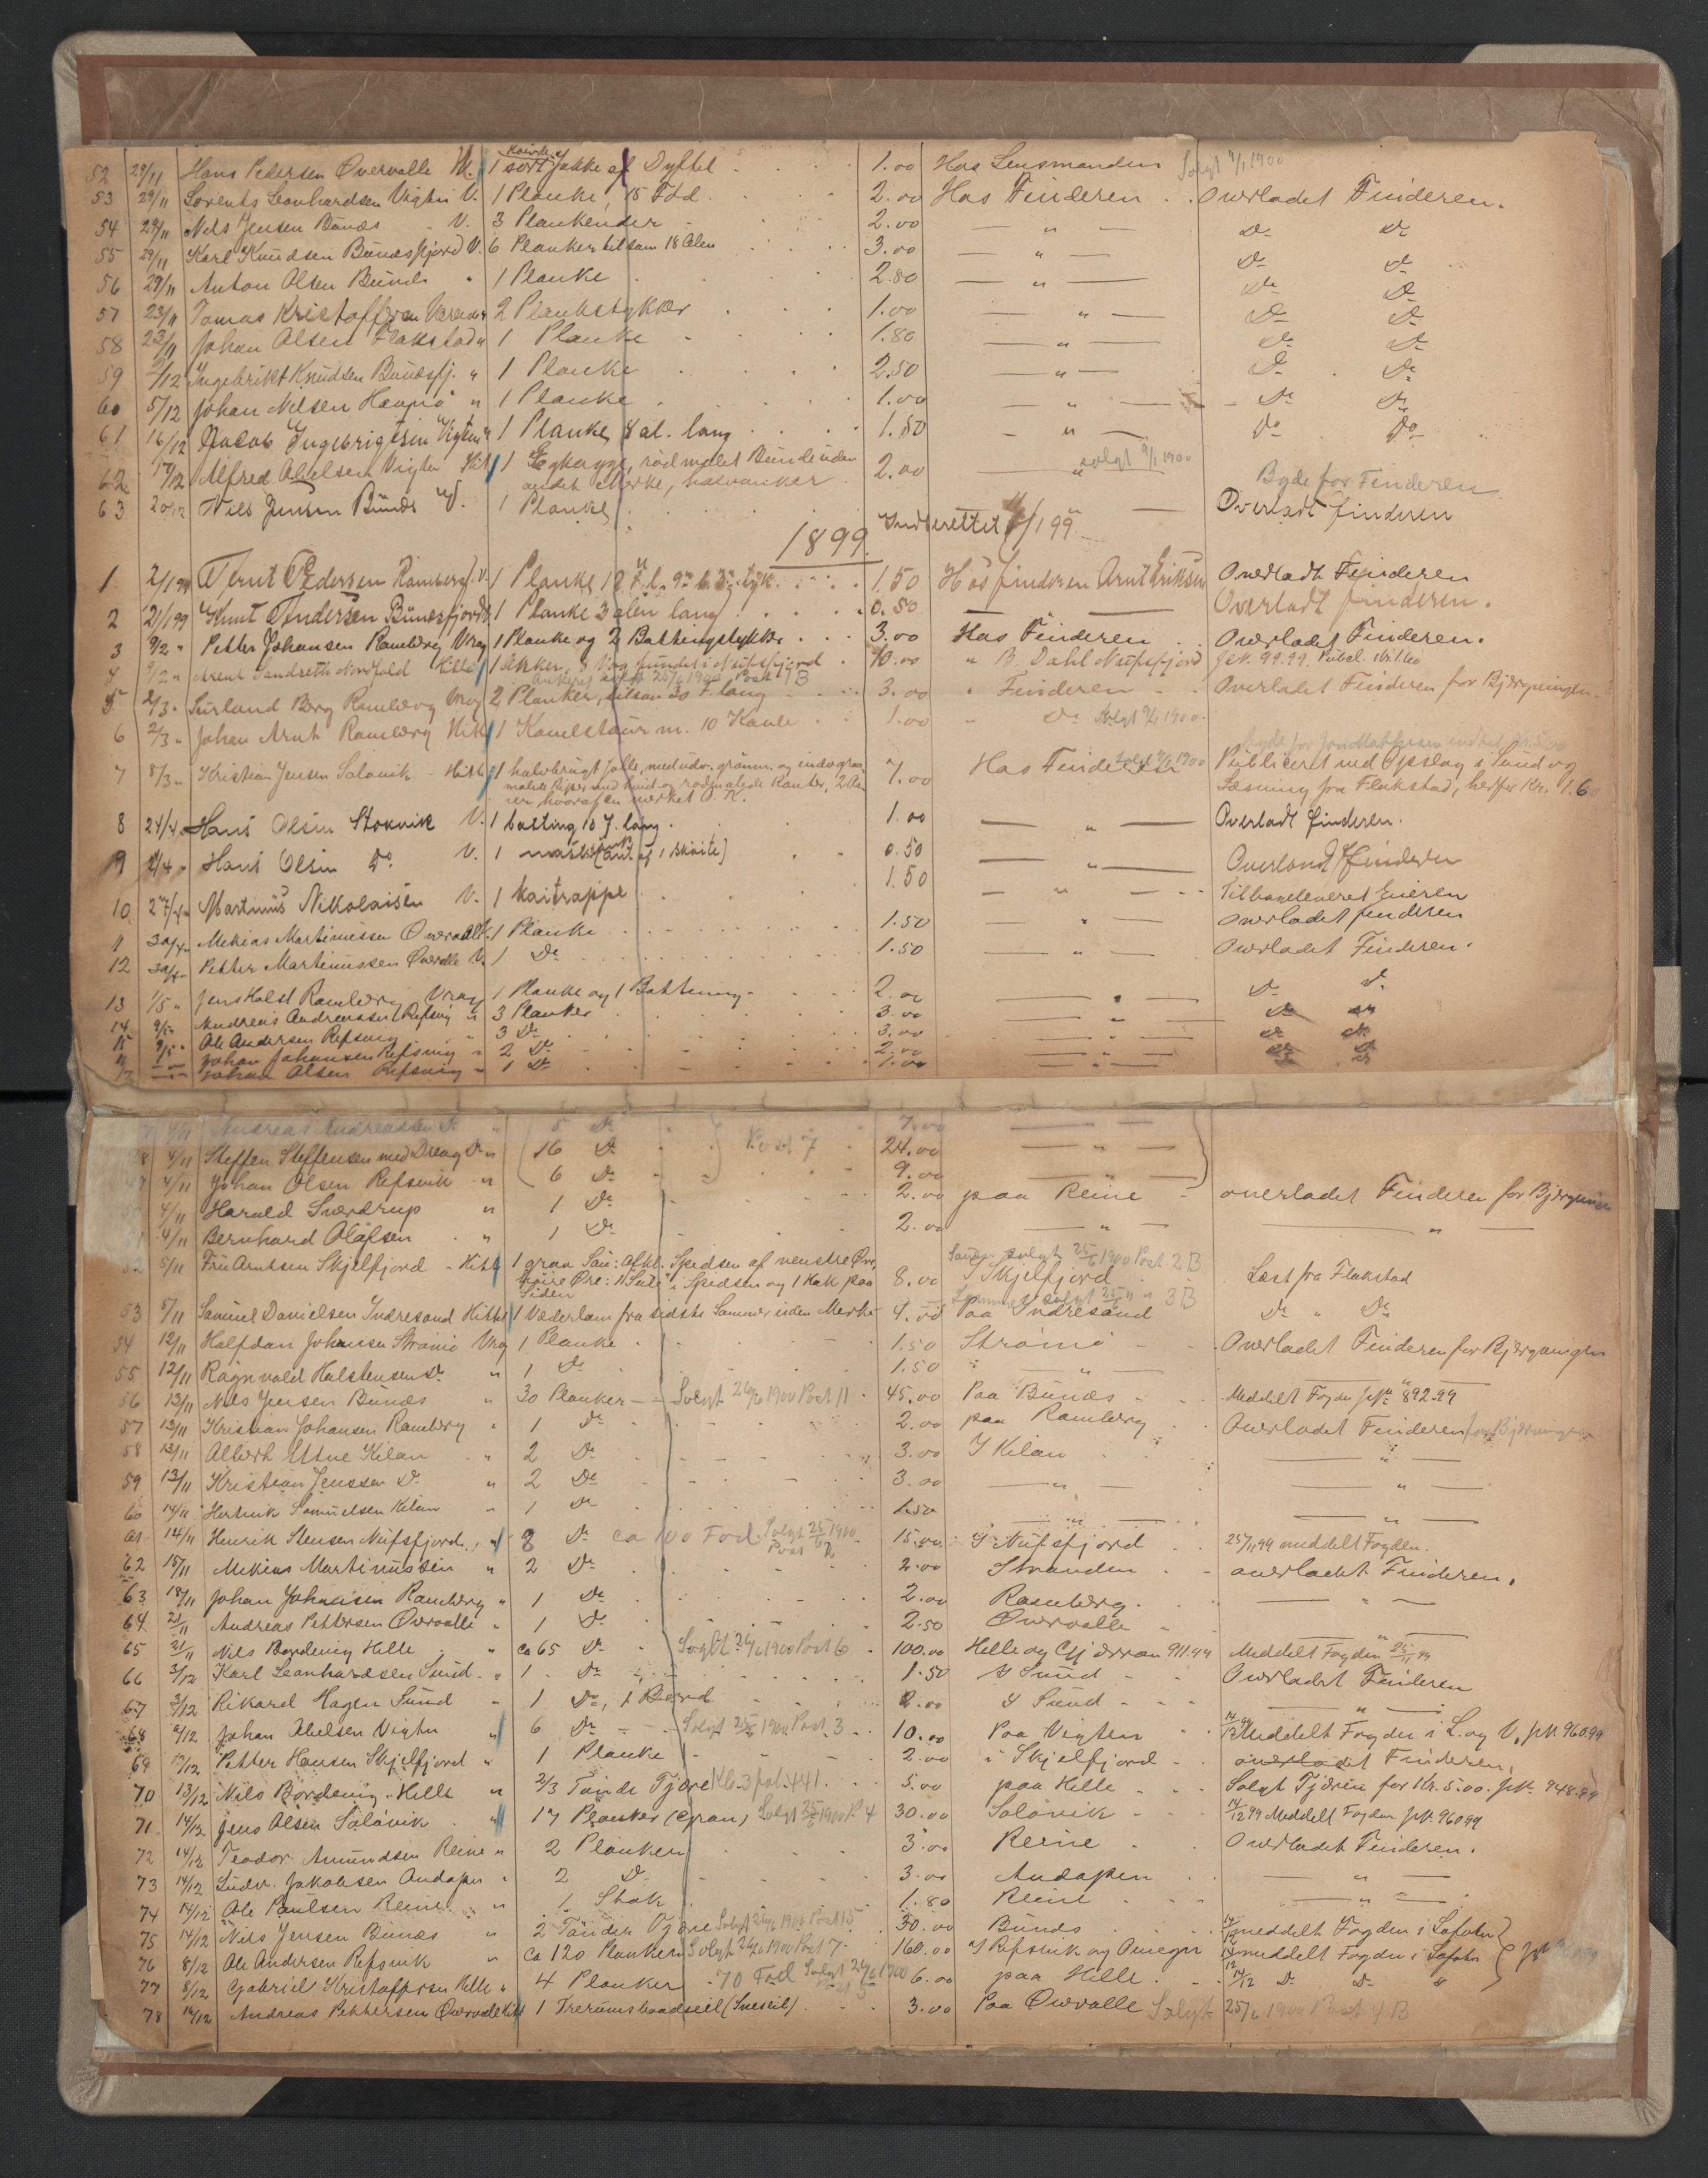 52 29/11 Hans Pedersen Overvalle V. 1 sort Jakke af Dyffel 1.00 Hos Lensmanden Solgt 9/1 1900
53 29/11 Lorents Leonhardsen Vigten V. 1 Planke, 15 Fod 2.00 Hos Finderen Overladet Finderen.
54 29/11 Nels Jensen Bunæs V. 3 Plankender 2.00 — " — Do Do
55 29/11 Karl Knudsen Bunæsfjord V. 6 Planker tilsam 18 Alen 3.00 — " — Do Do
56 29/11 Anton Olsen Bunæs " 1 Planke 2.80 — " — Do Do
57 23/11 Tomas Kristoffersen " 2 Plankstykker 1.00 — " — Do Do
58 23/11 Johan Olsen Flakstad " 1 Planke 1.80 — " — Do Do
59 /12 Ingebrikt Knudsen Bunæsfj. " 1 Planke 2.50 — " — Do Do
60 5/12 Johan Nelsen " 1 Planke 1.00 — " — Do Do
61 16/12 Jacob Ingebrigtsen Vigten " 1 Planke, 8 al. lang 1.50 — " — Do Do
62 19/12 Alfred Abelsen Vigten Hit 1 Egkagge, rødmalet Bunde uden
andet Merke, halvanker 2.00 — " — solgt 9/1 1900 Byde for Finderen
63 20/12 Nils Jensen Bunæs V. 1 Planke — Overladt finderen
1899 Indberettet 4/1 99
1 2/1 99 Arnt Pedersen Ramberg V. 1 Planke, 18 F. l. 9" b. 3" tyk. 1.50 Hos finderen Arnt Eriksen Overladt Finderen
2 21/1 99 Knut Andersen Bunæsfjord 1 Planke 3 alen lang 0.50 — Overladt finderen.
3 9/2 " Petter Johansen Ramberg Vrag 1 Planke og 2 Battingstykker 3.00 Hos Finderen Overladet Finderen.
4 9/2 " Arent Sandseth Nordfold Hitte 1 Anker, 3 Vog fundet i Nufsfjord 10.00 " B. Dahl Nufsfjord Jek. 99.99. Publ.
Ankeret solgt 25/6 1900 Post 1 B
5 2/3 " Sivland Berg Ramberg Vrag 2 Planker, tilsam 30 F. lang 3.00 " Finderen Overladet Finderen for Bjergningen
6 2/3 " Johan Arnt Ramberg Hitt 1 Kavelstaur m. 10 Kavle 1.00 " Do Solgt 9/1 1900
7 8/3 " Kristian Jensen Soløvik Hitt 1 halvbrugt Jolle, med udv. grønm. og indv. graa
malede Riper med hvid og rødmalede Kanter, 2 Aarer
hvoraf en merket O. K. 7.00 Hos Finderen Solgt 9/1 1900 Publiceret ved Opslag i Sund og
Læsning fra Flakstad, herfor Kr. 1.60
8 24/4 " Hans Olsen Stokvik V. 1 batting 10 f. lang. 1.00 — " — Overladt finderen.
9 24/4 " Hans Olsen Do V. 1 mast [ant. af 1 Skøite] 0.50 — " — Overladt Finderen
10 27/4 " Martinus Nikolaisen V. 1 kaitrappe 1.50 — " — Tilbageleveret Eieren
11 30/4 " Mekias Martinussen Overvalle V. 1 Planke 1.50 — " — Overladet finderen
12 30/4 " Petter Martinussen Overvalle V. 1 Do 1.50 — " — Overladet Finderen.
13 1/5 " Jens Holst Ramberg Vrag 1 Planke og 1 Batting 2.00 — " — Do Do
14 9/5 " Andreas Andreassen Refsvig " 3 Planker 3.00 — " — Do Do
15 9/5 " Ole Andersen Refsvig " 3 Do 3.00 — " — Do Do
16 — " — Johan Johansen Refsvig " 2 Do 2.00 — " — Do Do
17 — " — Johan Olsen Refsvig " 1 Do 1.00 — " — Do Do
4/11 Andreas Andreassen Do " 5 Do 7.00 — " —
8 4/11 Steffen Steffensen med Dreng Do " 16 Do Post 7 24.00 — " —
9 4/11 Johan Olsen Refsvik " 6 Do 9.00 — " —
4/11 Harald Sverdrup " 1 Do 2.00 paa Reine overladet Finderen for Bjergningen
1 4/11 Bernhard Olafsen " 1 Do 2.00 — " — — " —
52 5/11 Fru Arntsen Skjelfjord Hitt 1 graa Sau: Afkl. Spidsen af venstre Øre,
høire Øre: 1 i Spidsen og 1 Hak paa
Siden 8.00 I Skjelfjord Sauen solgt 25/6 1900 Post 2 B Læst fra Flakstad
53 5/11 Samuel Danielsen Yndresand Hitte 1 Væderlam fra sidste Sommer uden Merke 4.00 Paa Yndresand Lammet solgt 25/6 " " 3 B Do " Do
54 12/11 Halfdan Johansen Strømø Vrag 1 Planke 1.50 Strømø Overladet Finderen for Bjergningen
55 12/11 Ragnvald Halstensen Do " 1 Do 1.50 " — " — — " —
56 13/11 Nils Jensen Bunæs " 30 Planker Solgt 26/6 1900 Post 11 45.00 Paa Bunæs Meddelt Fogden Jek 892.99
57 13/11 Kristian Johansen Ramberg " 1 Do 2.00 paa Ramberg Overladet Finderen for Bjergningen
58 13/11 Albert Utne Kilan " 2 Do 3.00 I Kilan — " —
59 13/11 Kristian Jenssen Do " 2 Do 3.00 — " — — " —
60 14/11 Henrik Samuelsen Kilan " 1 Do 1.50 — " — — " —
61 14/11 Henrik Stensen Nufsfjord " 8 Do ca 100 Fod Solgt 25/6 1900 Post 2 15.00 I Nufsfjord 25/11 99 meddelt Fogden.
62 15/11 Mekias Martinussen " 2 Do 2.00 Stranden overladt Finderen.
63 18/11 Johan Johansen Ramberg " 1 Do 2.00 Ramberg — " —
64 21/11 Andreas Pettersen Overvalle " 1 Do 2.50 Overvalle — " —
65 21/11 Nils Bordevig Helle " ca 65 Do Solgt 26/6 1900 Post 6 100.00 Helle og 911.99 Meddelt Fogden 25/11 99
66 3/12 Karl Leonhardsen Sund " 1 Do 1.50 I Sund Overladet Finderen
67 3/12 Rikard Hagen Sund " 1 Do, 1 Bord 2.00 I Sund — " —
68 9/12 Johan Abelsen Vigten " 6 Do Solgt 25/6 1900 Post 3 10.00 Paa Vigten 14/12 99 Meddelt Fogden i L. og V. Jek 960.99
69 12/12 Petter Hansen Skjelfjord " 1 Planke 2.00 i Skjelfjord overladet Finderen
70 13/12 Nils Bordevig Helle " 2/3 Tønde Tjære Kb. 3 fol. 441 5.00 paa Helle Solgt Tjæren for Kr. 5.00. Jek. 948.99
71 14/12 Jens Olsen Soløvik " 17 Planker (Gran) Solgt 25/6 1900 P 4 30.00 Soløvik 14/12 99 Meddelt Fogden Jek. 960 99
72 14/12 Teodor Amundsen Reine " 2 Planker 3.00 Reine Overladet Finderen.
73 14/12 Ludv. Jakobsen Andøpen " 2 Do 3.00 Andøpen — " —
74 14/12 Ole Paulsen Reine " 1 Stok 1.80 Reine — " —
75 14/12 Nils Jensen Bunæs " 2 Tønder Tjære Solgt 26/6 1900 Post 15 30.00 Bunæs 14/12 meddelt Fogden i Lofoten
76 8/12 Ole Andersen Refsvik " ca 120 Planker Solgt 26/6 1900 Post 7 160.00 I Refsvik og 14/12 meddelt Fogden i Lofoten
77 8/12 Gabriel Kristoffersen Helle " 4 Planker 70 Fod Solgt 26/6 1900 Post 5 6.00 paa Helle 14/12 Do Do "
78 14/12 Andreas Pettersen Overvalle Hitt 1 Trerumsbaadseil (Sneseil) 3.00 Paa Overvalle Solgt 25/6 1900 Post 4 B